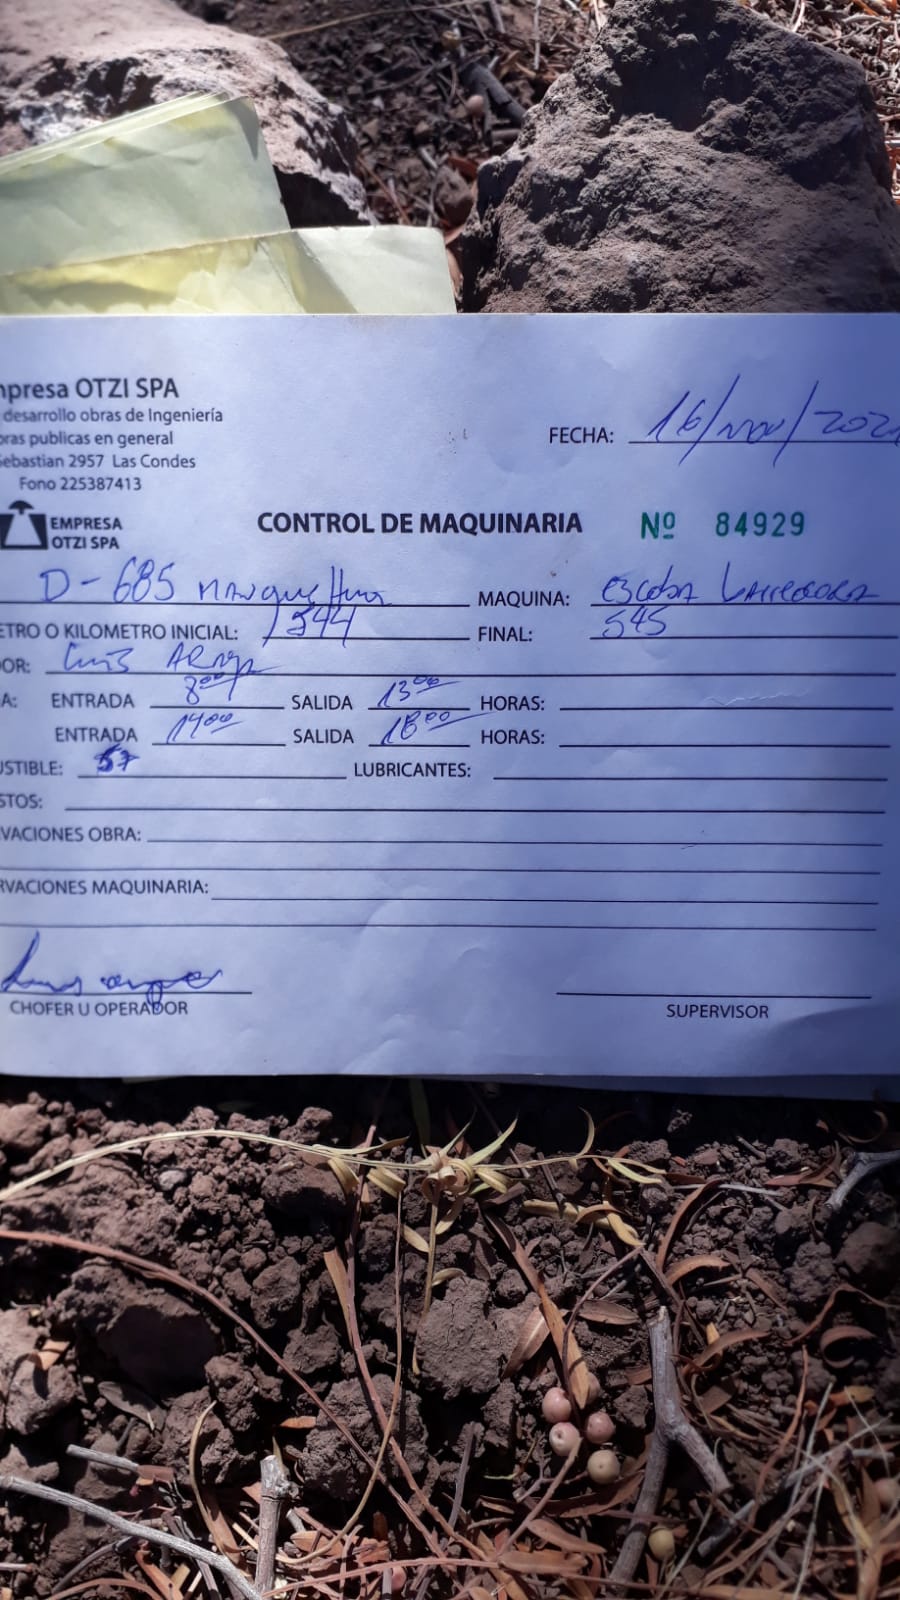 mpresa OTZI SPA
desarrollo obras de Ingeniería
oras publicas en general
Sebastian 2957 Las Condes
Fono 225387413
FECHA: 16/nov/202
EMPRESA
OTZI SPA
CONTROL DE MAQUINARIA Nº 84929
D-685 MAQUINA: Escoba barredora
ETRO O KILOMETRO INICIAL: 544 FINAL: 545
OR: Luis
A: ENTRADA 8:00 SALIDA 13:00 HORAS:
ENTRADA 14:00 SALIDA 18:00 HORAS:
USTIBLE: 57 LUBRICANTES:
STOS:
VACIONES OBRA:
RVACIONES MAQUINARIA:
CHOFER U OPERADOR
SUPERVISOR